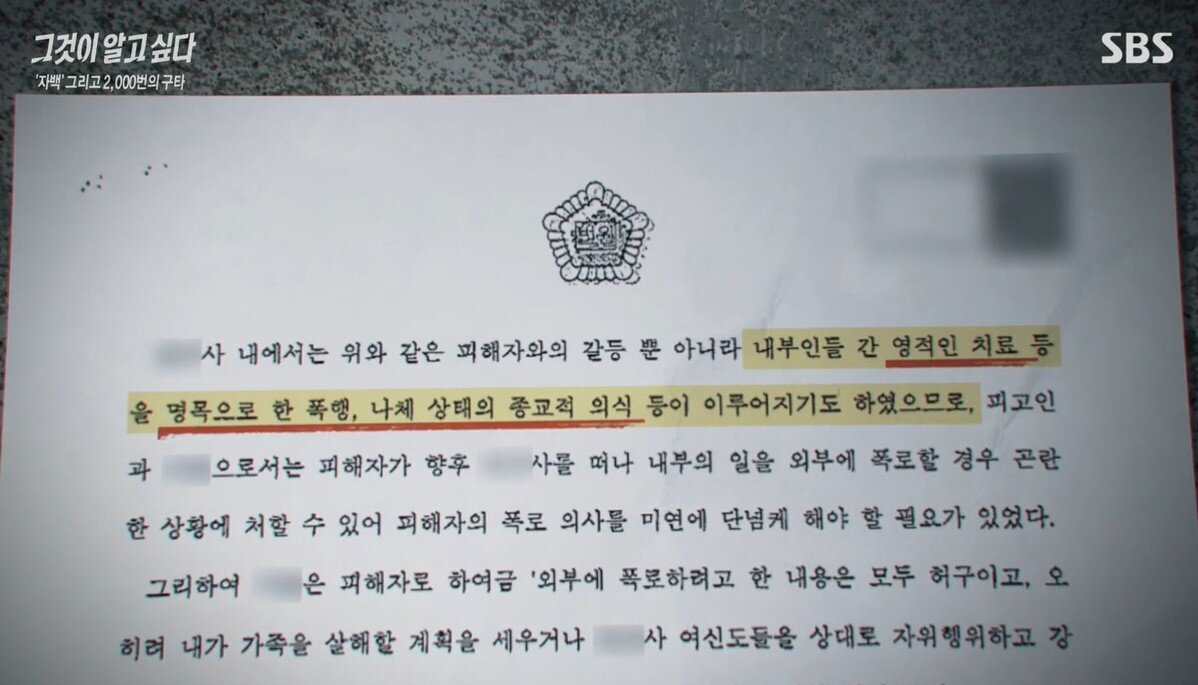 그것이 알고 싶다
'자백' 그리고 2,000번의 구타
SBS
법원
사 내에서는 위와 같은 피해자와의 갈등 뿐 아니라 내부인들 간 영적인 치료 등
을 명목으로 한 폭행, 나체 상태의 종교적 의식 등이 이루어지기도 하였으므로, 피고인
과 으로서는 피해자가 향후 사를 떠나 내부의 일을 외부에 폭로할 경우 곤란
한 상황에 처할 수 있어 피해자의 폭로 의사를 미연에 단념케 해야 할 필요가 있었다.
그리하여 은 피해자로 하여금 '외부에 폭로하려고 한 내용은 모두 허구이고, 오
히려 내가 가족을 살해할 계획을 세우거나 사 여신도들을 상대로 자위행위하고 강